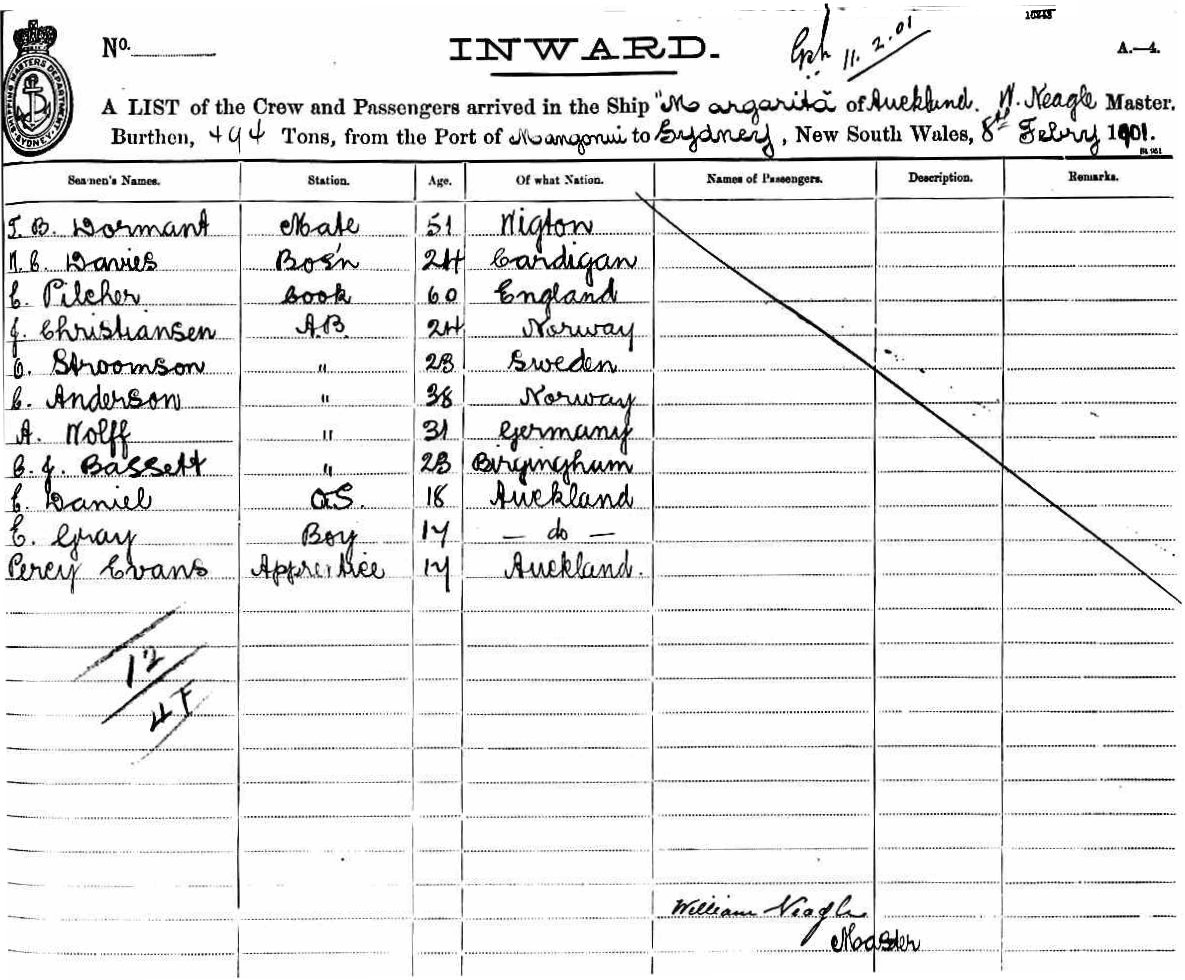 16848
No.
INWARD.
11.2.01
A.—4.
SHIPPING MASTERS DEPARTMENT SYDNEY
A LIST of the Crew and Passengers arrived in the Ship "Margarita" of Auckland. W. Neagle Master.
Burthen, 494 Tons, from the Port of Mangonui to Sydney, New South Wales, 8th Febry 1901.
Seamen's Names. Station. Age. Of what Nation. Names of Passengers. Description. Remarks.
T. B. Dormant Mate 51 Wigton
Davies Bos'n 24 Cardigan
C. Pilcher Cook 60 England
J. Christiansen A.B. 24 Norway
O. Stroomson " 23 Sweden
C. Anderson " 38 Norway
A. Wolff " 31 Germany
C. J. Bassett " 23 Birgingham
C. Daniel O.S. 18 Auckland
E. Gray Boy 17 — do —
Percy Evans Apprentice 17 Auckland.
12
4 F
William Neagle
Master